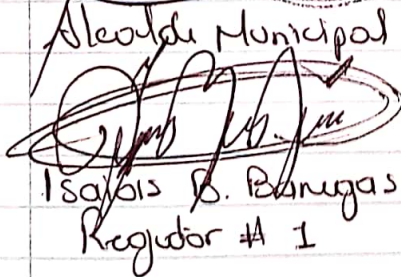 Alcalde Municipal
Isaias B. Banegas
Regidor # 1